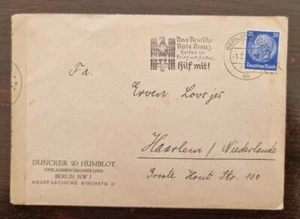 Das Deutsche
Rote Kreuz
Hilf mit!
BERLIN
25
25
Deutsches Reich
Fa.
Erven Loosjes
Haarlem / Niederlande
Groote Hout Str. 100
DUNCKER & HUMBLOT
VERLAGSBUCHHANDLUNG
BERLIN NW 7